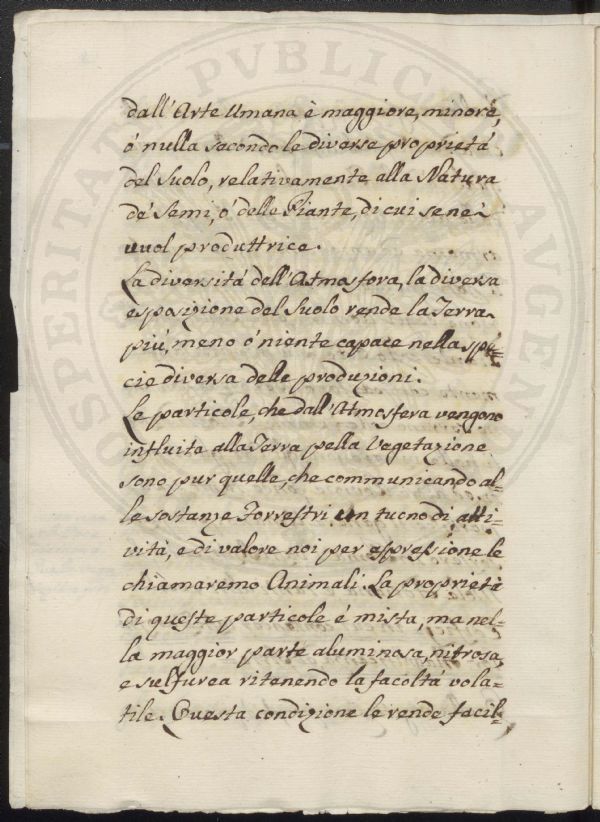 dall'Arte Umana è maggiore, minore,
ó nulla secondo le diverse proprietá
del Suolo, relativamente alla Natura
de' Semi, ó delle Piante, di cui se ne
vuol produttrice.
La diversitá dell'Atmosfora, la diversa
esposizione del Suolo rende la Terra
piú, meno ó niente capace nella spe=
cie diversa delle produzioni.
Le particole, che dall'Atmosfera vengono
influite alla Terra pella Vegetazione
sono pur quelle, che communicando al=
le sostanze Terrestri un di atti=
vità, e di valore noi per espressione le
chiamaremo Animali. La proprietà
di queste particole é mista, ma nel=
la maggior parte aluminosa, nitrosa,
e sulfurea ritenendo la facoltá vola=
tile. Questa condizione le rende facil=
PUBLIC
AUGEN
OSPERITATI